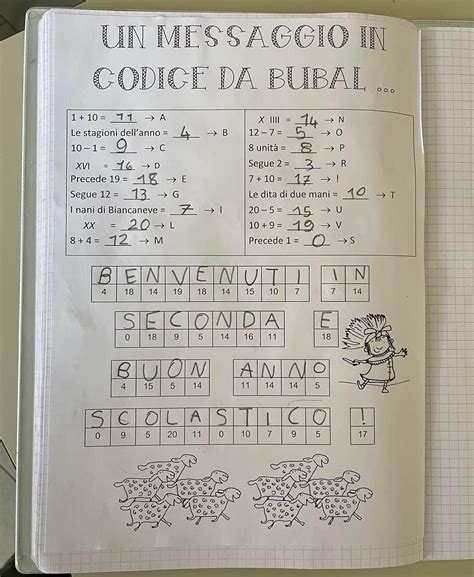 UN MESSAGGIO IN
CODICE DA BUBAL ...
1 + 10 = 11 → A
Le stagioni dell'anno = 4 → B
10 – 1 = 9 → C
XVI = 16 → D
Precede 19 = 18 → E
Segue 12 = 13 → G
I nani di Biancaneve = 7 → I
XX = 20 → L
8 + 4 = 12 → M
X IIII = 14 → N
12 – 7 = 5 → O
8 unità = 8 → P
Segue 2 = 3 → R
7 + 10 = 17 → !
Le dita di due mani = 10 → T
20 – 5 = 15 → U
10 + 9 = 19 → V
Precede 1 = 0 → S
B E N V E N U T I I N
4 18 14 19 18 14 15 10 7 7 14
S E C O N D A E
0 18 9 5 14 16 11 18
B U O N A N N O
4 15 5 14 11 14 14 5
S C O L A S T I C O !
0 9 5 20 11 0 10 7 9 5 17